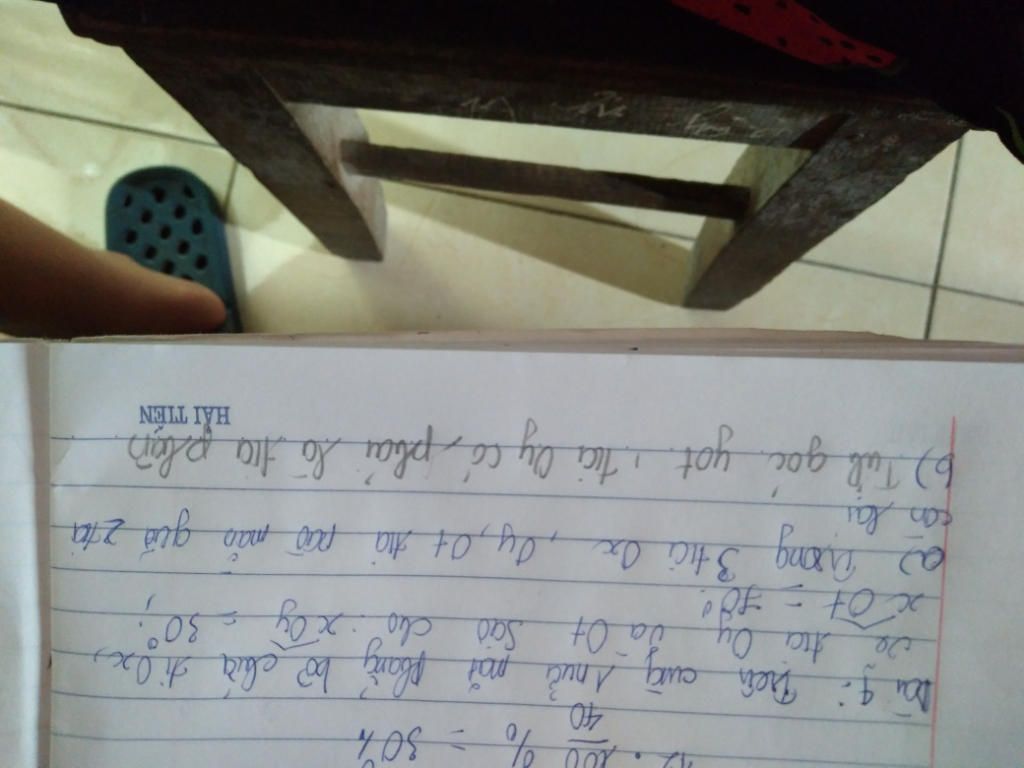 12 . 100 / 40 % = 30%
Bài 4: Trên cùng 1 nửa mặt phẳng bờ chứa ti Ox,
vẽ tia Oy và Ot sao cho : xOy = 30°,
xOt = 70°.
a) Trong 3 tia Ox, Oy, Ot tia nào nào giữa 2 tia
còn lại
b) Tính góc yot, tia Oy có phải là tia phân
HẢI TIẾN